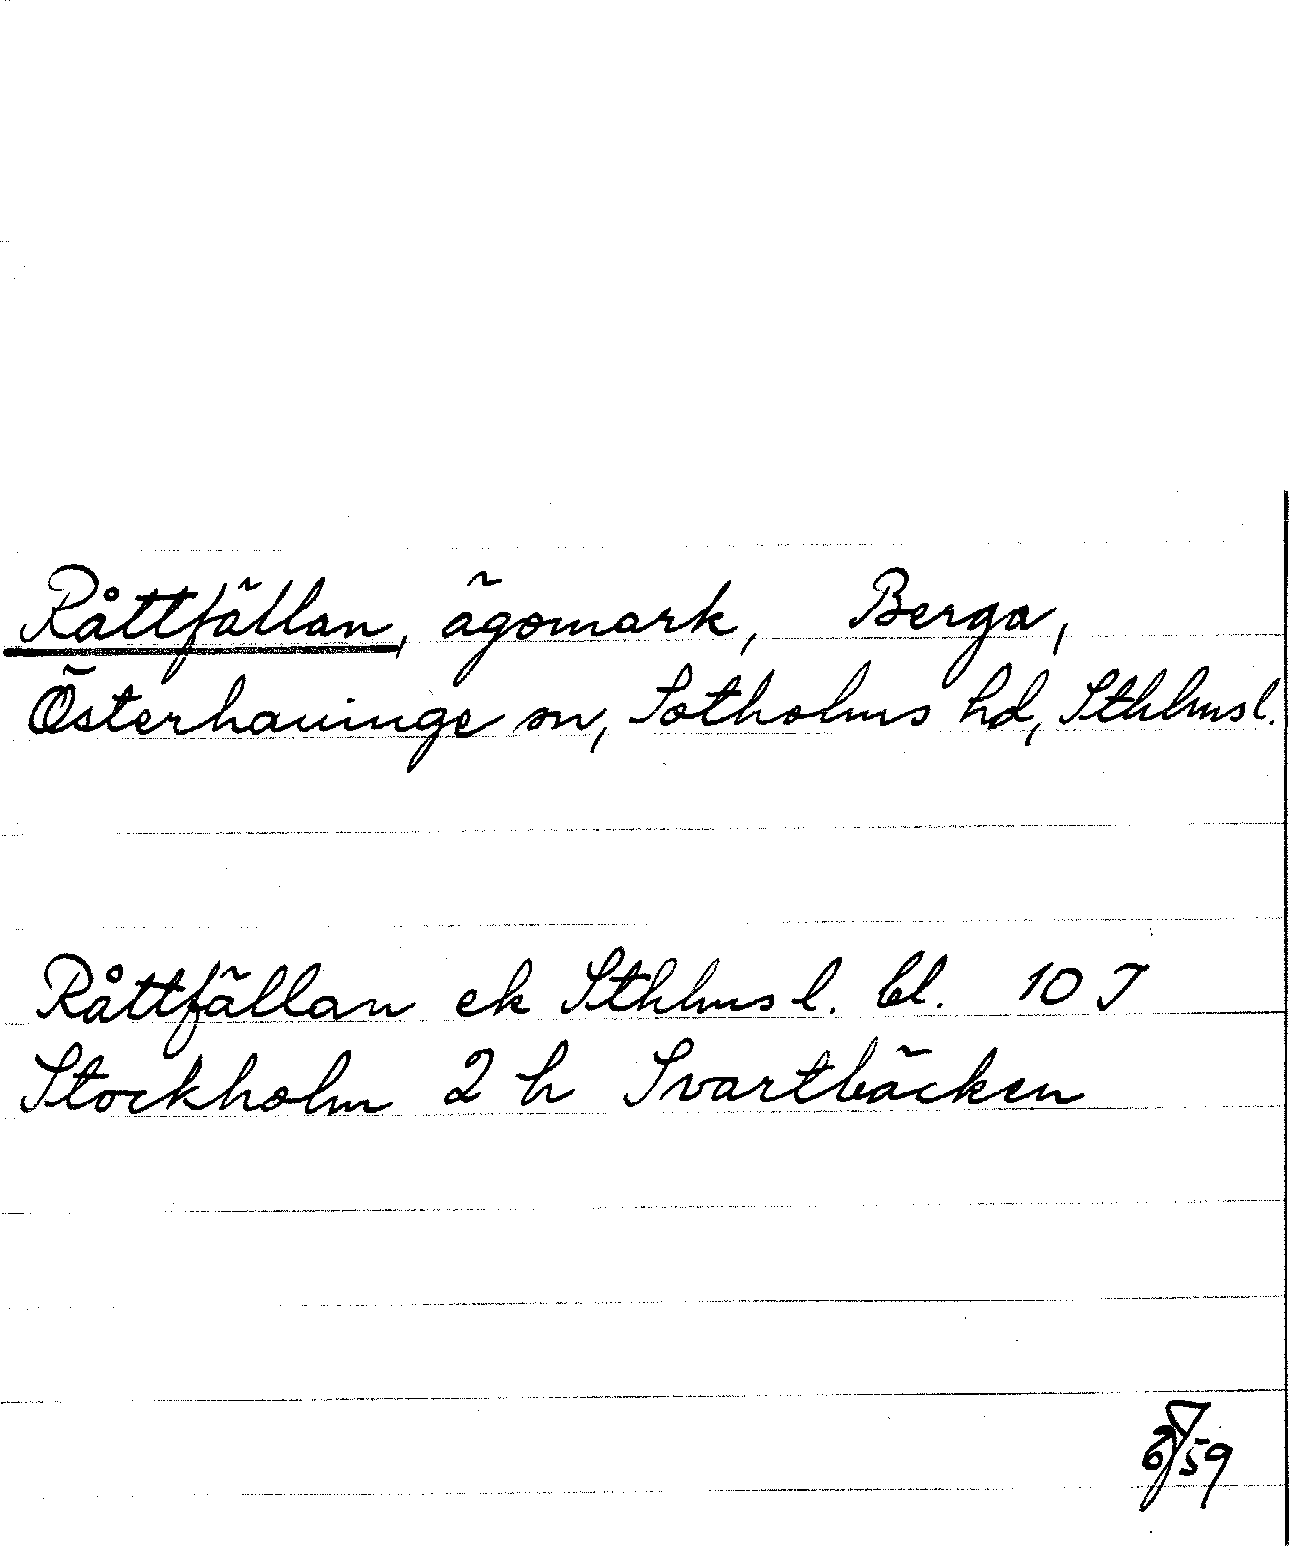 Råttfällan, ägomark, Berga,
Österhaninge sn, Sotholms hd, Sthlms l.
Råttfällan ek Sthlms l. bl. 10 J
Stockholm 2 h Svartbäcken